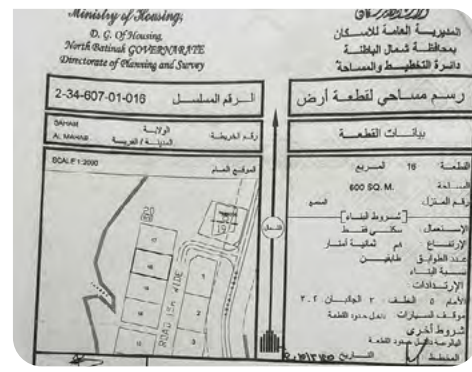 Ministry of Housing,
D. G. Of Housing
North Batinah GOVERNARATE
Directorate of Planning and Survey
المديرية العامة للاسكان
بمحافظة شمال الباطنة
دائرة التخطيط والمساحة
2-34-607-01-016
الرقم المسلسل
رسم مساحي لقطعة أرض
SAHAM
AL MAHAB
الولاية
المدينة / القرية
رقم الخريطة
بيانات القطعة
SCALE 1:2000
الموقع العام
القطعة 16 المربع
المساحة 600 SQ. M.
رقم المنزل
شروط البناء
الإستعمال سكني فقط
الإرتفاع ٨م ثمانية أمتار
عدد الطوابق طابقين
نسبة البناء
الإرتدادات
الأمام ٥ الخلف ٢ الجانبان ٣.٢
موقف السيارات داخل حدود القطعة
شروط أخرى
المخطط
التاريخ
الشمال
20
19
ROAD 15M WIDE